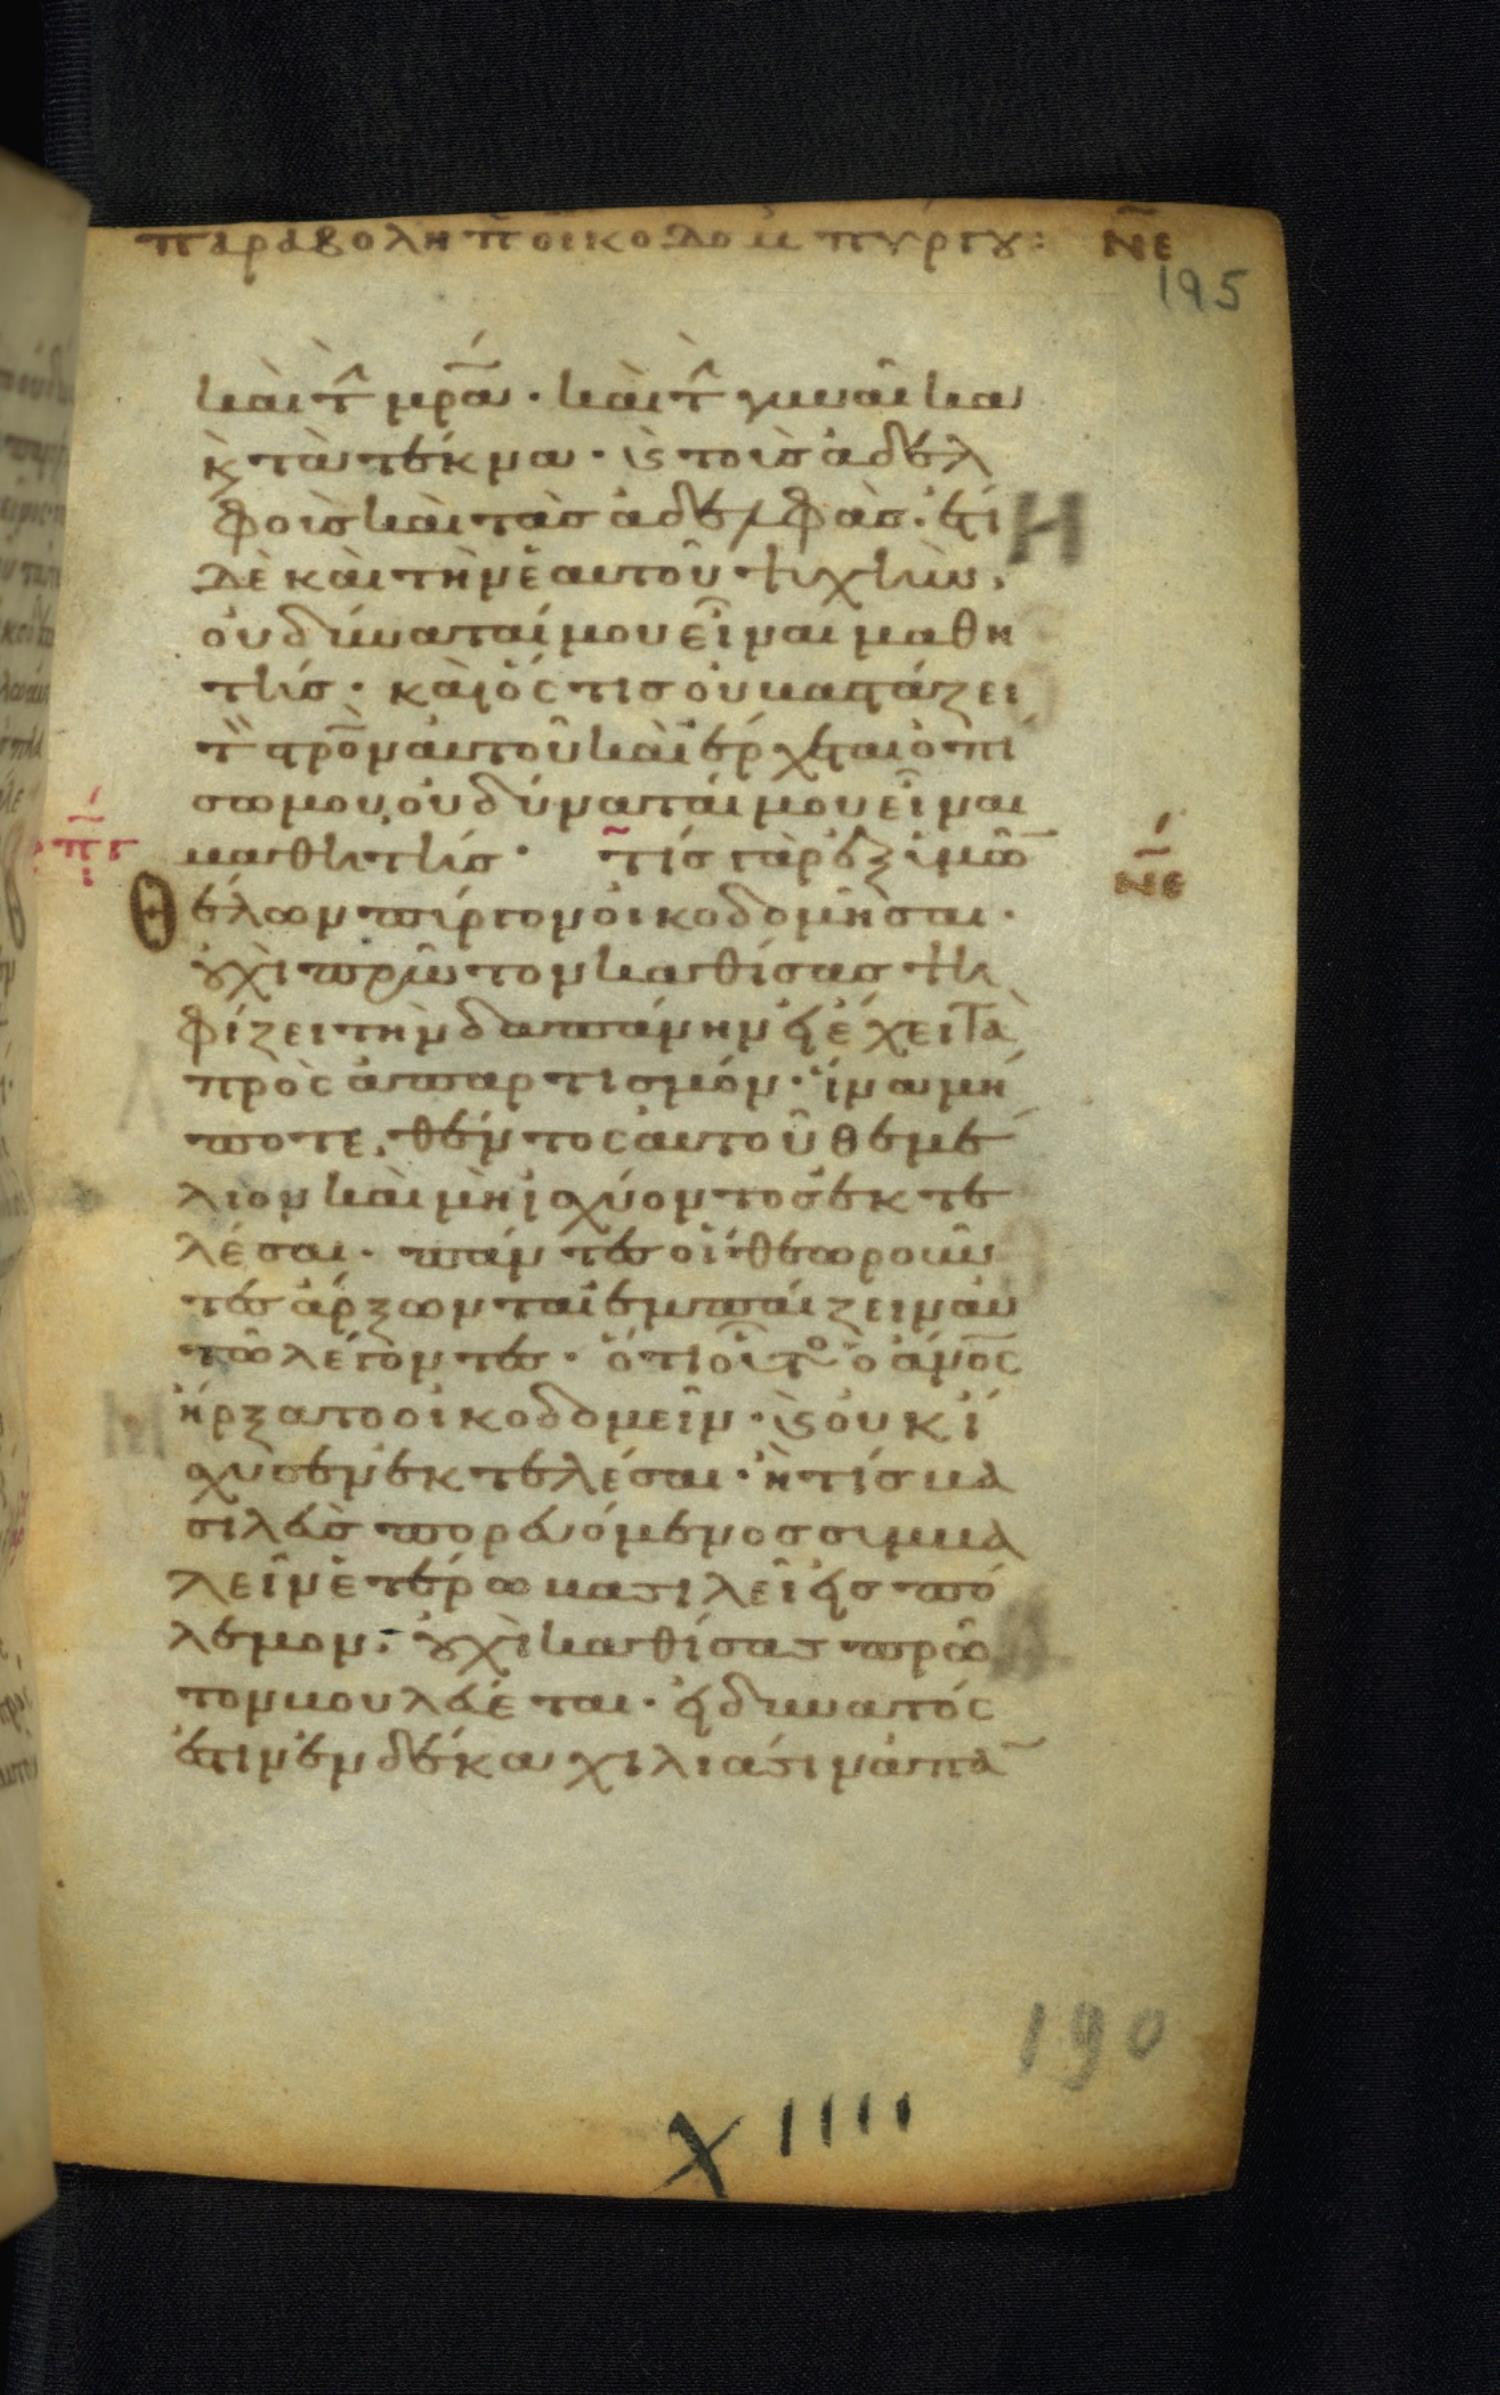 παραβολὴ π οικοδομ πυργου: ΝΕ
195
καὶ τ μρα· καὶ τ γυναῖκα
κ τὰ τέκνα· κ τοὶσ ἀδελ
φοὶσ καὶ τὰσ ἀδελφὰσ· ἔτι
Η
δὲ καὶ τὴν ἑαυτοῦ ψυχὴν,
οὐ δύναταί μου εἶναι μαθη
τήσ· καὶ ὅς τισ οὐ βαστάζει
τ στρον αὐτοῦ καὶ ἔρχεται ὀπί
σω μου, οὐ δύναταί μου εἶναι
μαθητήσ· τίσ γὰρ ἐξ ὑμῶ
σπγ
ΝΕ
Θέλων πύργον οἰκοδομῆσαι·
οὐχὶ πρῶτον καθίσασ ψη
φίζει τὴν δαπάνην εἰ ἔχει τὰ
πρὸς ἀπαρτισμόν· ἵνα μή
ποτε, θέντος αὐτοῦ θεμέ
λιον καὶ μὴ ἰσχύοντοσ ἐκτε
λέσαι· πάντεσ οἱ θεωροῦν
τεσ ἄρξωνται ἐμπαίζειν αὐ
τῶ λέγοντεσ· ὅτι οὗτο ὁ ἄνος
ἤρξατο οἰκοδομεῖν· κ οὐκ ἴ
σχυσεν ἐκτελέσαι· ἢ τίσ βα
σιλεὺσ πορευόμενοσ συμβα
λεῖν ἑτέρω βασιλεῖ εἰσ πό
λεμον· οὐχὶ καθίσασ πρῶ
τον βουλεύεται· εἰ δυνατός
ἐστιν ἐν δέκα χιλιάσιν ἀπα
190
X IIII